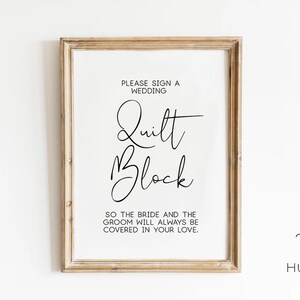 PLEASE SIGN A
WEDDING
Quilt
Block
SO THE BRIDE AND THE
GROOM WILL ALWAYS BE
COVERED IN YOUR LOVE.